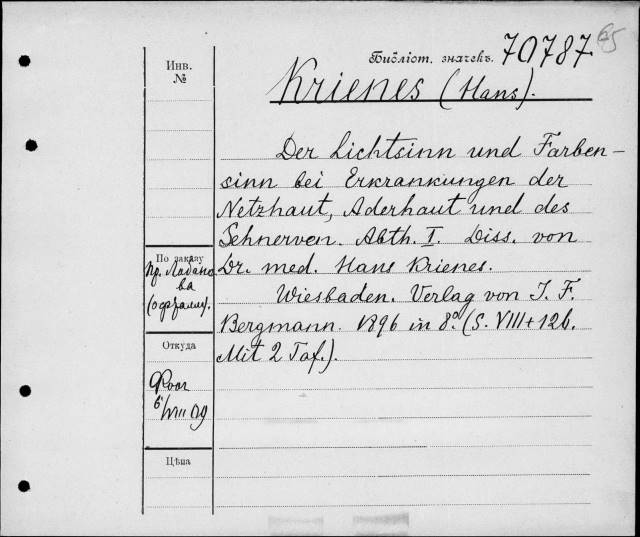 65
Библіот. значекъ. 70787
Krienes (Hans).
Инв.
№
Der Lichtsinn und Farben-
sinn bei Erkrankungen der
Netzhaut, Aderhaut und des
Sehnerven. Abth. I. Diss. von
Dr. med. Hans Krienes.
Wiesbaden. Verlag von J. F.
Bergmann. 1896 in 8º. (S. VIII+126.
Mit 2 Taf.).
По заказу
пр. Лобано
ва
(офталм).
Откуда
6/VIII 09
Цѣна